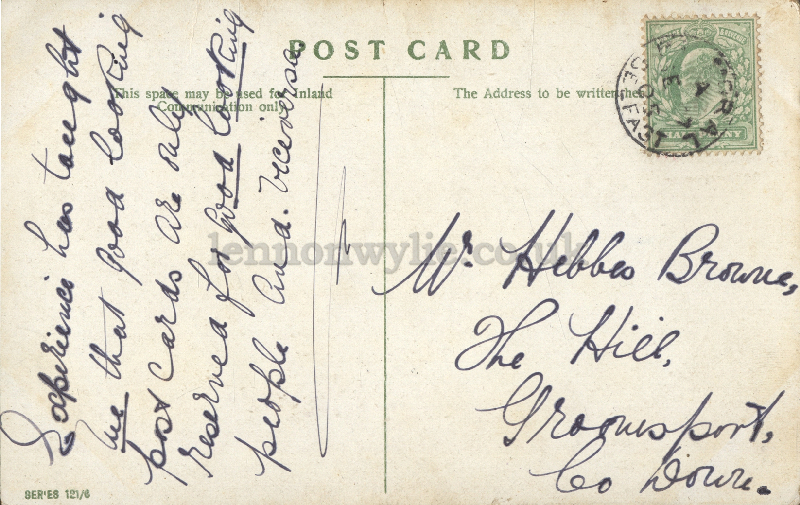 POST CARD
This space may be used for Inland
Communication only
The Address to be written here
Experience has taught
me that good looking
post cards are only
reserved for good looking
people and. viceversa
Mr Hebbes Browne,
The Hill,
Groomsport,
Co Down.
BELFAST
HALFPENNY
lennonwylie.co.uk
SERIES 121/6